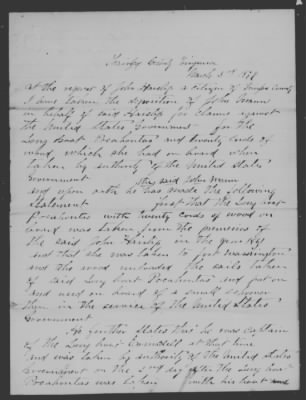 County Virginia
March 3rd 1878
At the request of John Haislip a citizen of County
I have taken the deposition of John Mann
in behalf of said Haislip for claims against
the United States Government for the
Long Boat Pocahontas and twenty cords of
wood which she had on board when
taken by authority of the United States
Government the said John Mann
and upon oath he has made the following
Statement first that the Long boat
Pocahontas with twenty cords of wood on
board was taken from the premises of
the said John Haislip in the year 1861
and that she was taken to fort Washington
and the wood unloaded the sails taken
of said Long boat Pocahontas and put on
and on board of a small schooner
then in the service of the United States
Government
He further States that he was captain
of the Long boat at that time
and was taken by authority of the United States
Government on the 2nd day after the Long boat
Pocahontas was taken with his boat and